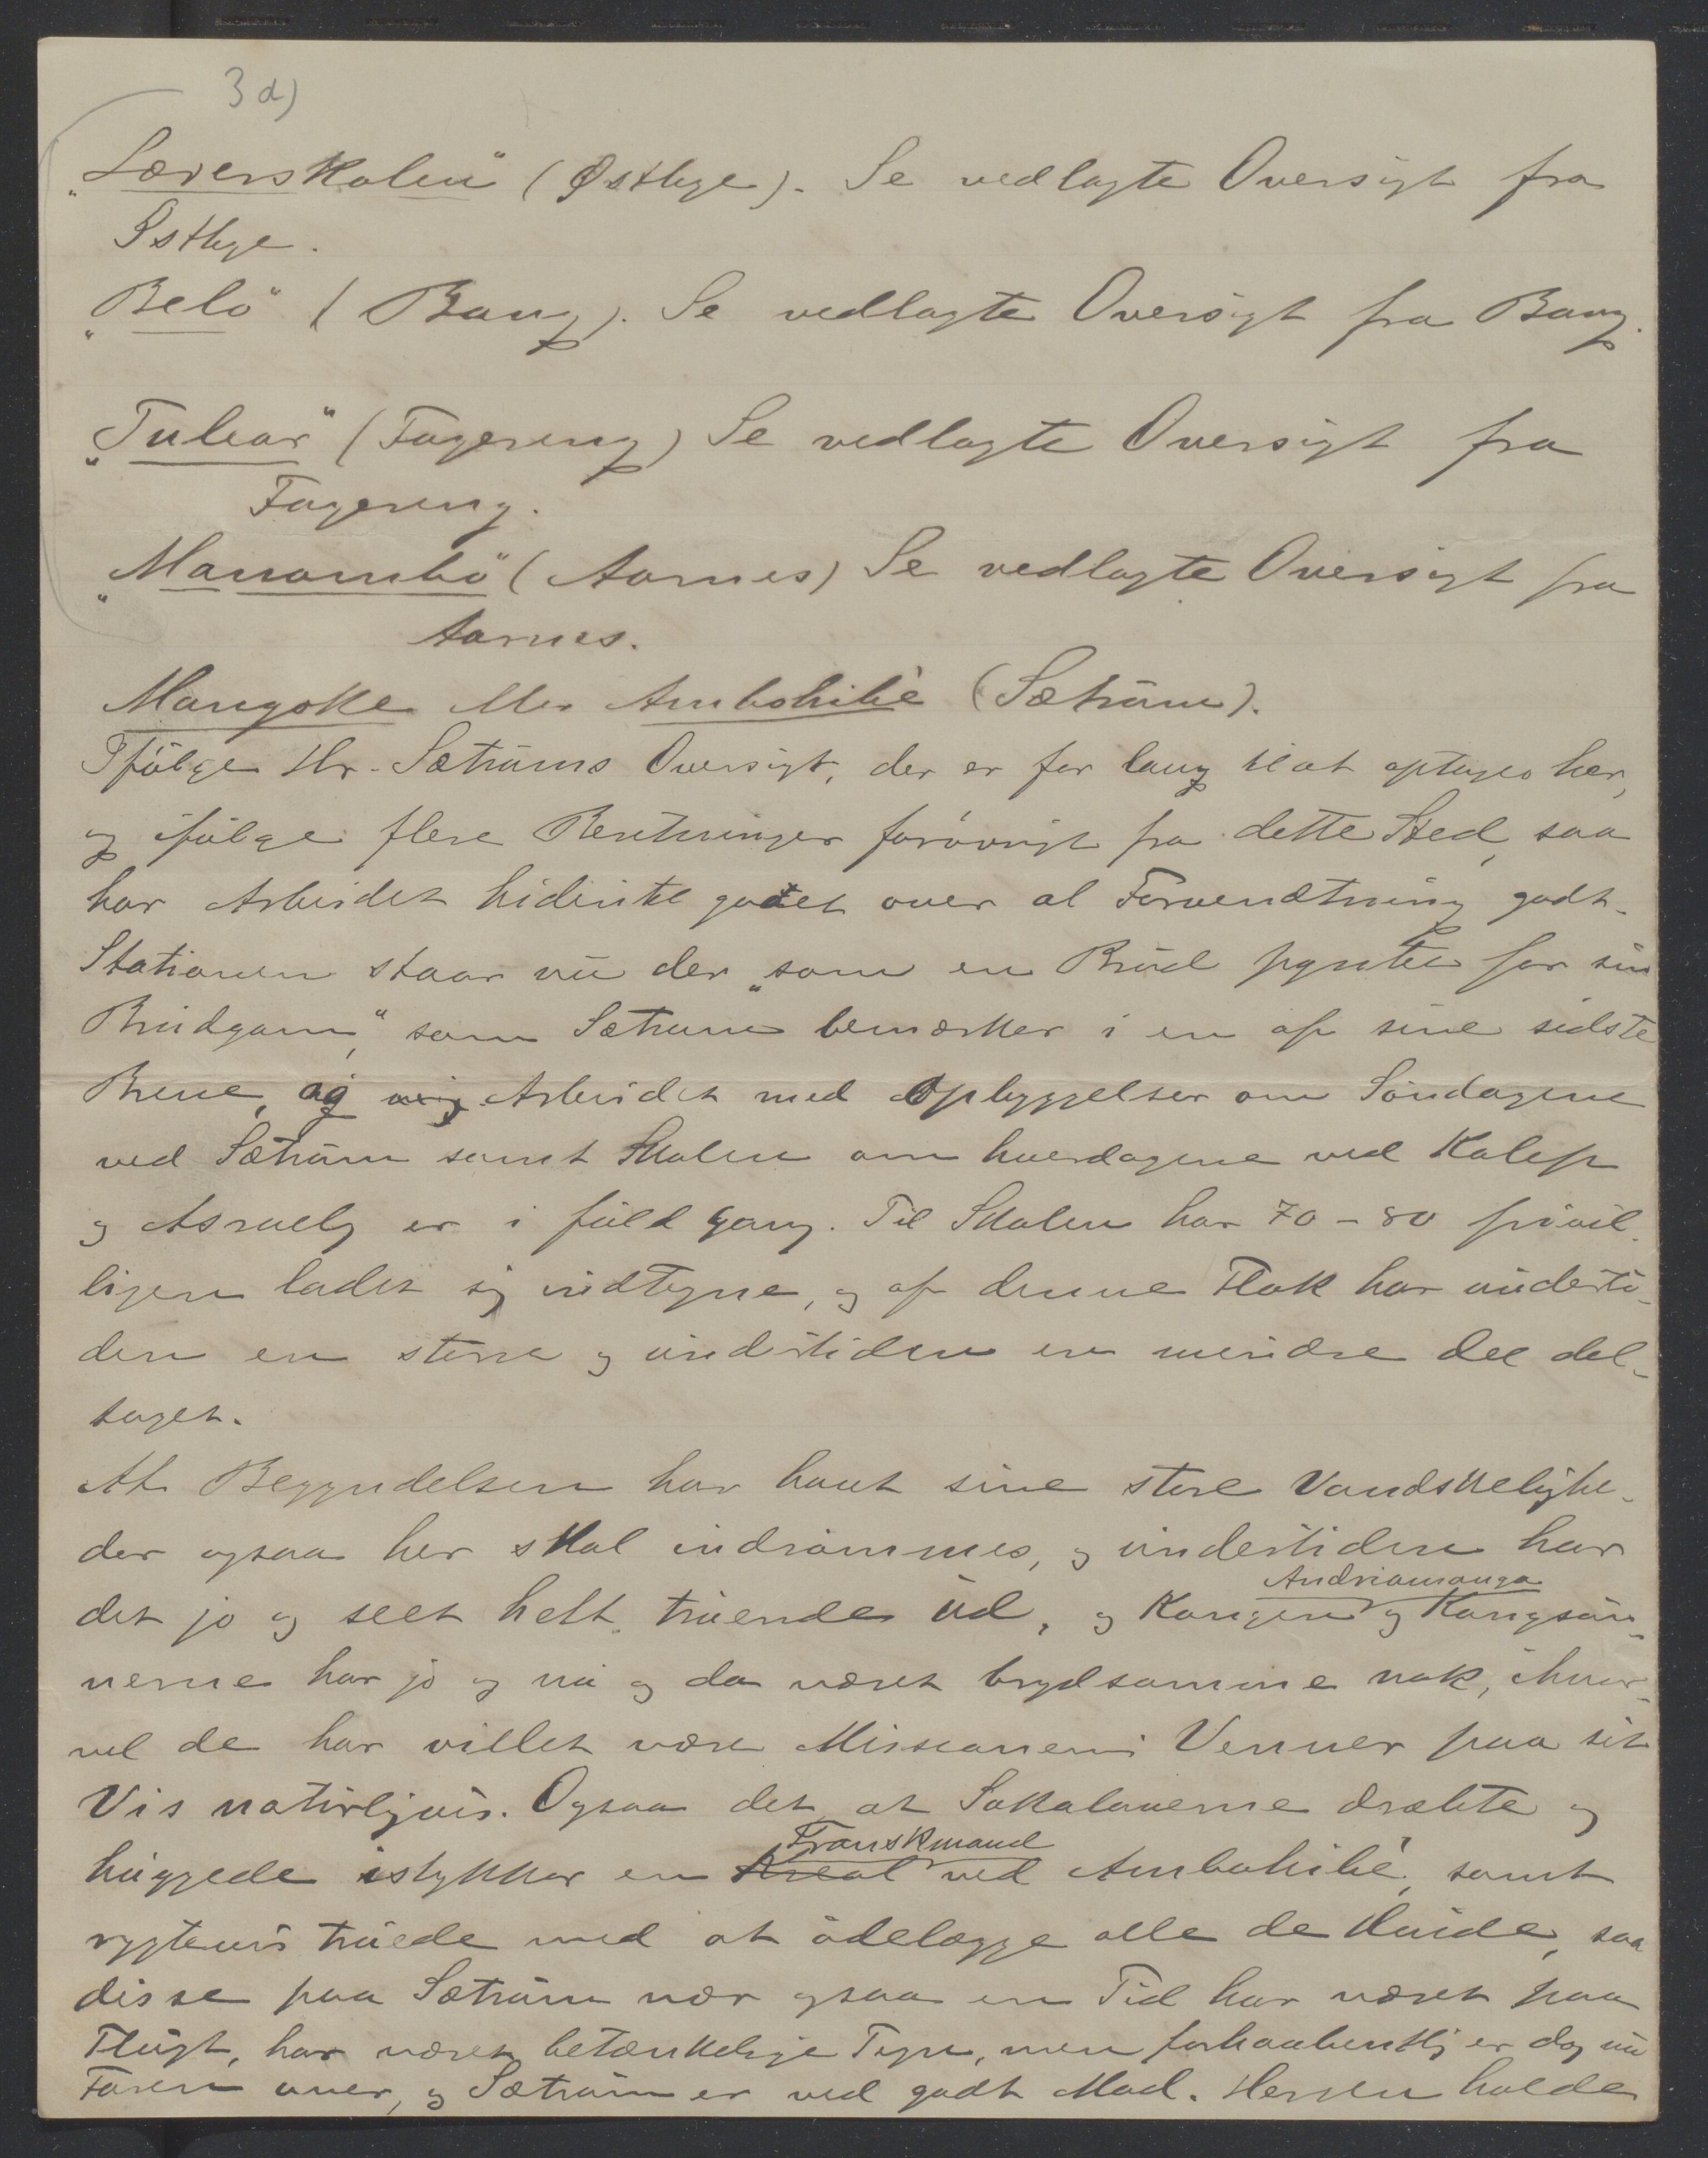 3 d)
„Lærerskolen" (Østbye). Se vedlagte Oversigt fra
Østbye.
„Belo" (Bang). Se vedlagte Oversigt fra Bang.
„Tulear" (Fagereng) Se vedlagte Oversigt fra
Fagereng.
„Manombo" (Aarnes) Se vedlagte Oversigt fra
Aarnes.
Mangoke eller Ambohibé (Sætrum).
Ifølge Hr. Sætrums Oversigt, der er for lang til at optages her,
og ifølge flere Beretninger forøvrigt fra dette Sted, saa
har Arbeidet hidintil gaaet over al Forventning godt.
Stationen staar nu der „som en Brud pyntet for sin
Brudgom," som Sætrum bemærker i en af sine sidste
Breve, og Arbeidet med Opbyggelser om Søndagene
ved Sætrum samt Skolen om hverdagene ved Kalef
og Asraely er i fuld Gang. Til Skolen har 70-80 frivil-
ligen ladet sig indtegne, og af denne Flok har underti-
den en større og undertiden en mindre del del-
taget.
At Begyndelsen har havt sine store Vandskelighe-
der ogsaa her skal indrømmes, og undertiden har
det jo og seet helt truende ud, og Kongen Andriamanga og Kongsøn-
nerne har jo og nu og da været brydsomme nok, ihvor-
vel de har villet være Missionens Venner paa sit
Vis naturligvis. Ogsaa det at Sakalaverne dræbte og
huggede istykker en Kreol Franskmand ved Ambohibé, samt
rygtevis truede med at ødelægge alle de Hvide, saa
disse paa Sætrum nær ogsaa en Tid har været paa
Flugt, har været betænkelige Tegn, men forhaabentlig er dog nu
Faren over, og Sætrum er ved godt Mod. Herren holde